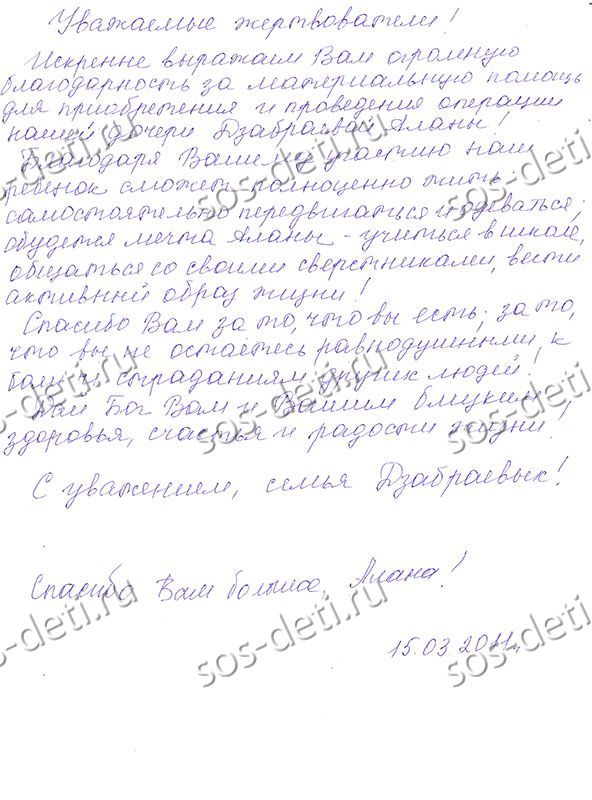 Уважаемые жертвователи!
Искренне выражаем Вам огромную
благодарность за материальную помощь
для приобретения и проведения операции
нашей дочери Дзабраевай Аланы!
Благодаря Вашему участию наш
ребёнок сможет полноценно жить;
самостоятельно передвигаться и одеваться;
сбудется мечта Аланы - учиться в школе,
общаться со своими сверстниками, вести
активный образ жизни!
Спасибо Вам за то, что вы есть; за то,
что вы не остаётесь равнодушными к
боли и страданиям других людей!
Дай Бог Вам и Вашим близким
здоровья, счастья и радости жизни!
С уважением, семья Дзабраевых!
Спасибо Вам большое, Алана!
15.03.2011г.
sos-deti.ru
sos-deti.ru
sos-deti.ru
sos-deti.ru
sos-deti.ru
sos-deti.ru
sos-deti.ru
sos-deti.ru
sos-deti.ru